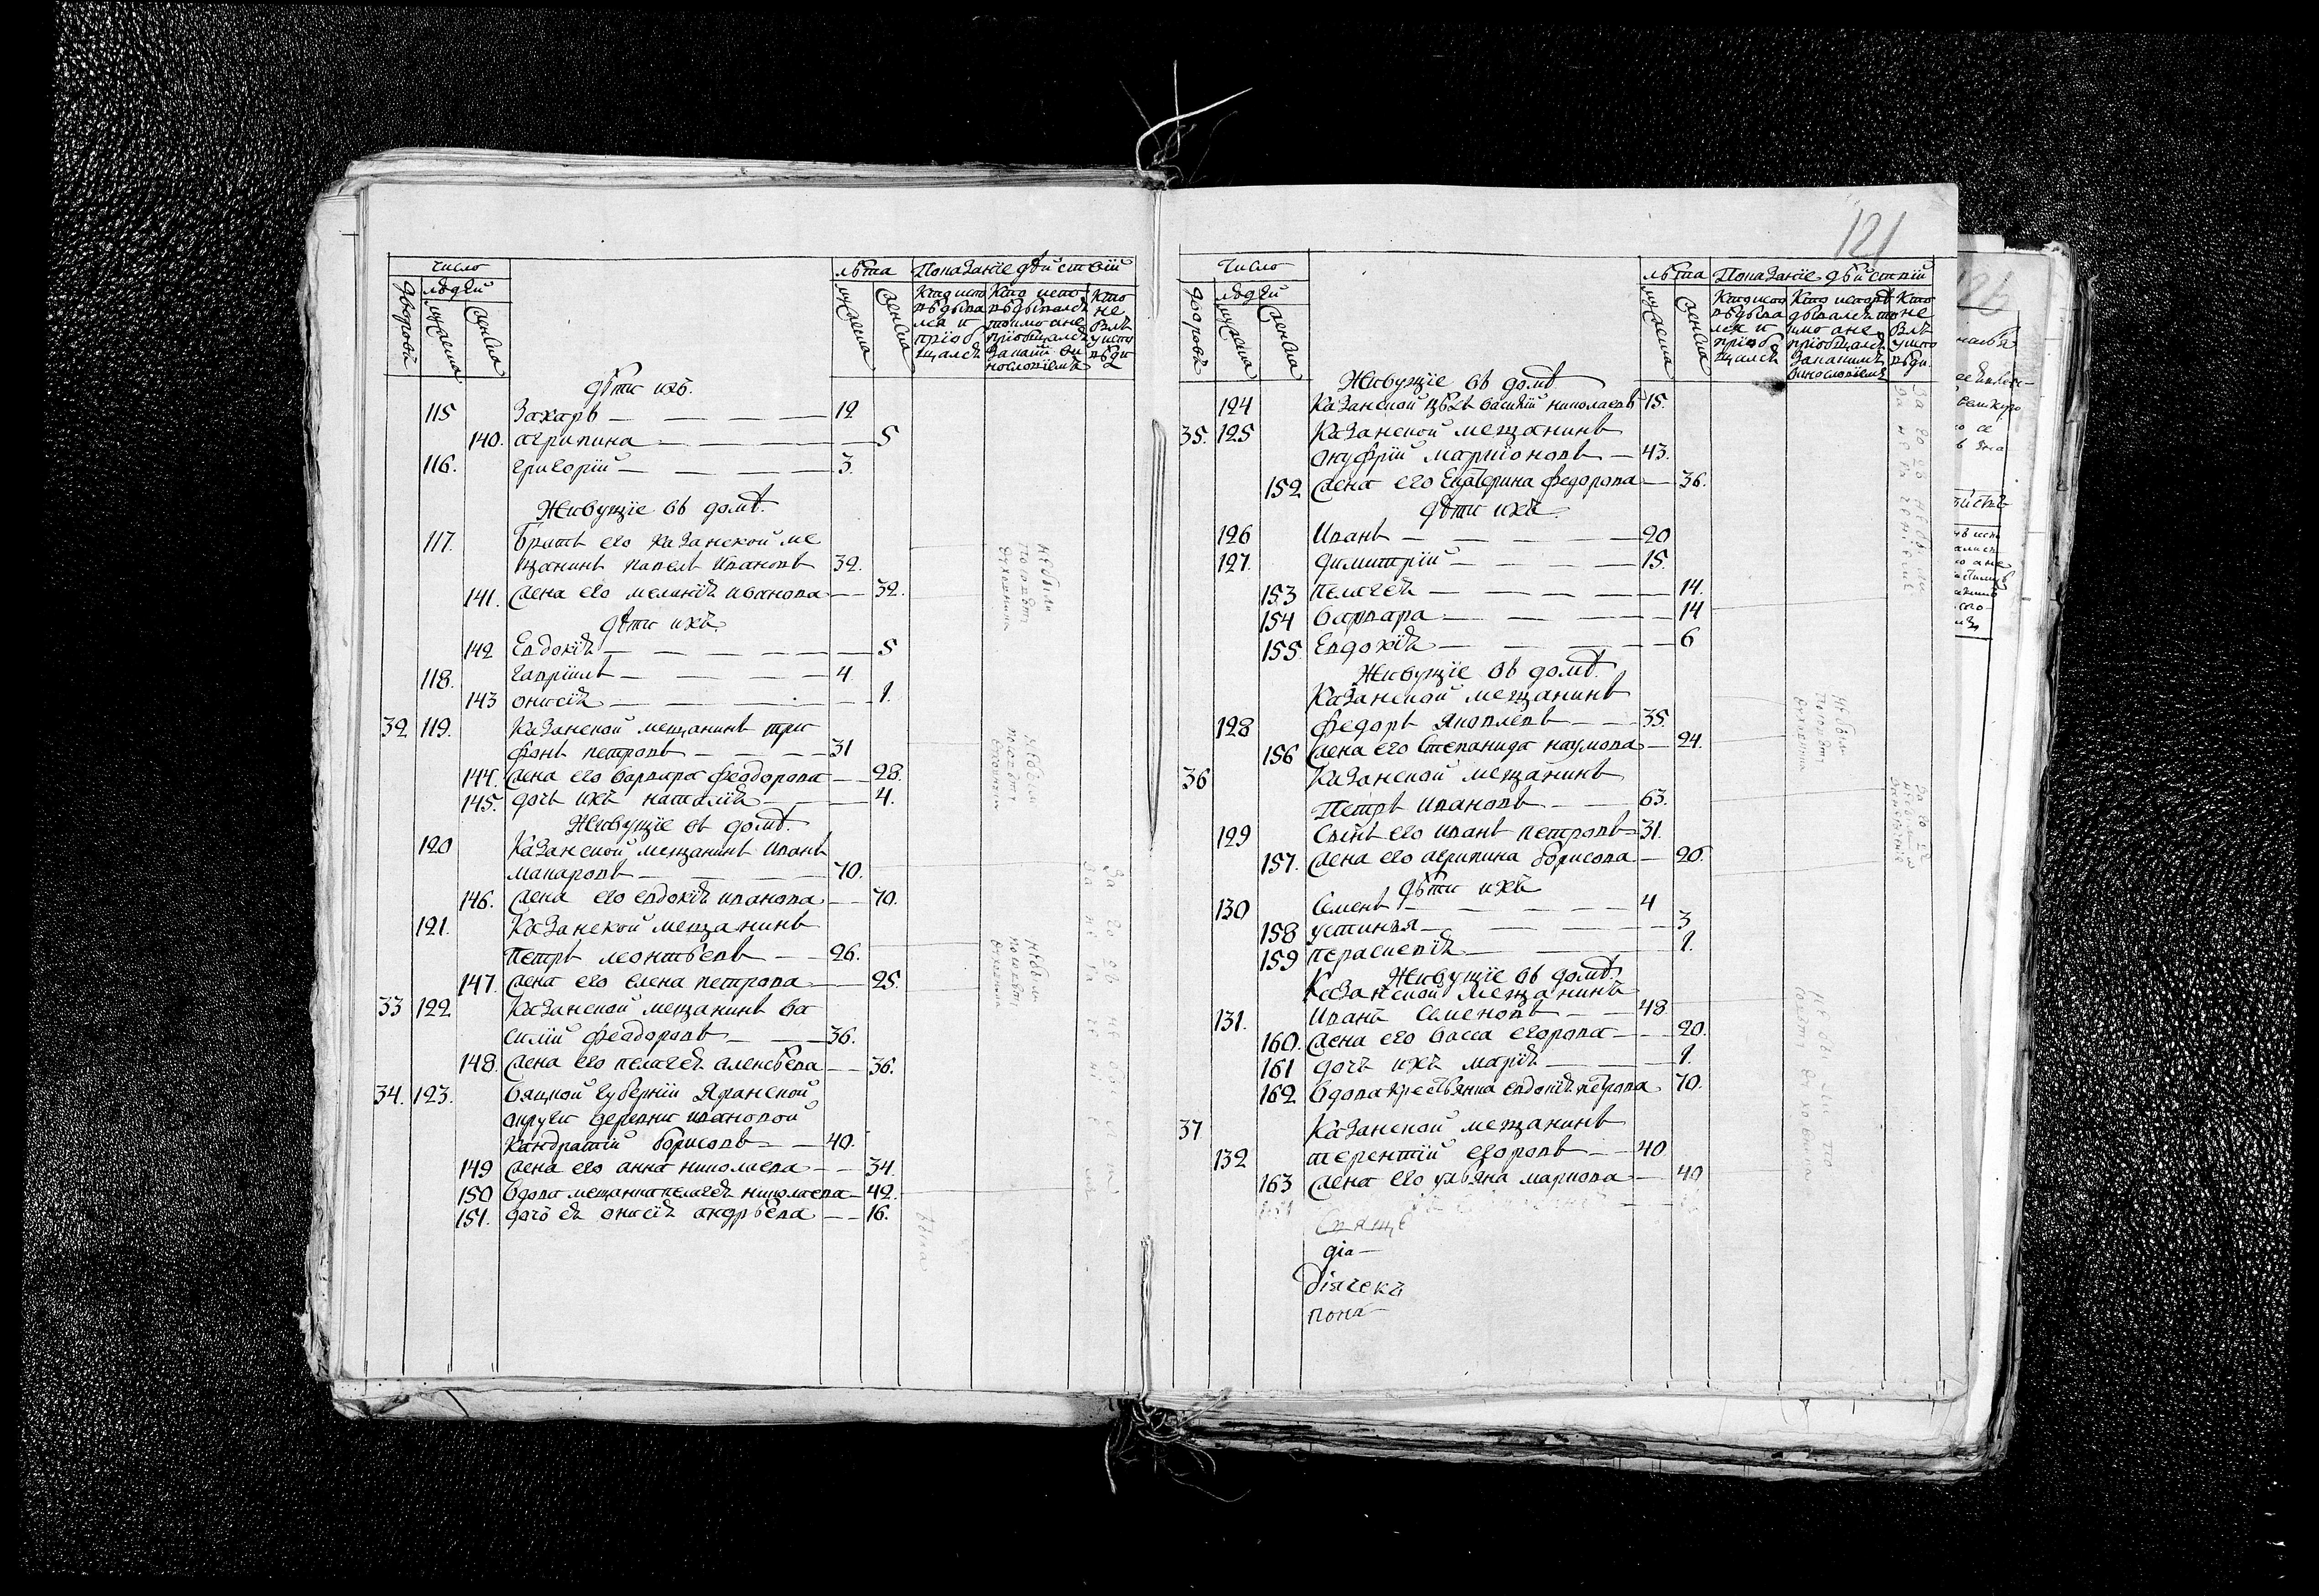 число
людей
дворовъ
мужеска
женска
лѣта
мужеска
женска
Показанїе дѣйствїй
Кто испо
вѣдыва
лся и
прїоб
щался
Кто испо
вѣдывался
токмо а не
прїобщался
За какимъ ви
нословїемъ
Кто
не
былъ
у испо
вѣди
дѣти ихъ.
115 Захаръ — 12
140. агрипина — 5
116. григорїй — 3.
Живущїе въ домѣ.
117. братъ его Казанской ме
щанинъ павелъ Ивановъ 32.
141. жена его меланїя иванова — 32.
дѣти ихъ.
142 Евдокїя — 5
118. гаврїилъ — 4
143 онисїя — 1.
32 119. Казанской мещанинъ три
фонъ петровъ — 31
144. жена его варвара феодорова — 28.
145. дочь ихъ наталїя — 4.
Живущїе въ домѣ.
120 Казанской мещанинъ иванъ
макаровъ — 70.
146. жена его евдокїя иванова — 70.
121. Казанской мещанинъ
Петръ леонтьевъ — 26.
147. жена его елена петрова — 25.
33 122 Казанской мещанинъ ва
силїй феодоровъ — 36.
148. жена его пелагея алексѣева — 36.
34. 123. Вяцкой губернїи Яранской
округи деревни ивановой
Кандратїй борисовъ — 40.
149 жена его анна николаева — 34.
150 Вдова мещанка пелагея николаева — 42.
151. дочь ея онисїя андрѣева — 16.
не были
по
не были
не были
121
число
людей
дворовъ
мужеска
женска
лѣта
мужеска
женска
Показанїе дѣйствїй
Кто испо
вѣдыва
лся и
прїоб
щался
Кто исповѣ
дывался то
кмо а не
прїобщался
За какимъ
винословїемъ
Кто
не
былъ
у испо
вѣди.
Живущїе въ домѣ
124 Казанской цѣховой василїй николаевъ 15.
35. 125 Казанской мещанинъ
онуфрїй марионовъ — 43.
152 жена его Екатерина федорова — 36.
дѣти ихъ
126 Иванъ — 20
127. димитрїй — 15.
153 пелагея — 14.
154 варвара — 14
155 Евдокїя — 6
Живущїе въ домѣ.
Казанской мещанинъ
128 федоръ яковлевъ — 35.
156 жена его степанида наумова — 24.
36 Казанской мещанинъ
Петръ ивановъ — 63.
129 Сынъ его иванъ петровъ — 31.
157. жена его агрипина борисова — 26.
дѣти ихъ
130 Семенъ — 4
158 устинья — 3
159 параскевїя — 1.
Живущїе въ домѣ.
Казанской мещанинъ
131. Иванъ Семеновъ — 48.
160. жена его васса егорова — 20.
161 дочь ихъ марїя — 1.
162 Вдова крестьянка евдокїя петрова 70.
37 Казанской мещанинъ
132 терентїй егоровъ — 40
163 жена его ульяна маркова — 40
Свяще
дїа—
Дїячекъ
пона—
не были